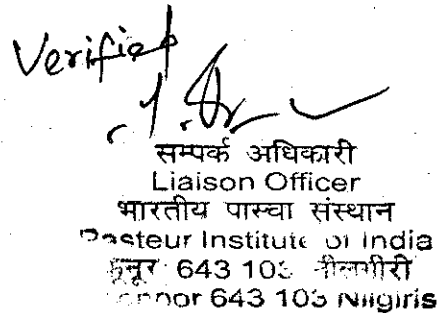 Verified
सम्पर्क अधिकारी
Liaison Officer
भारतीय पास्चर संस्थान
Pasteur Institute of India
643 103 नीलगीरी
643 103 Nilgiris